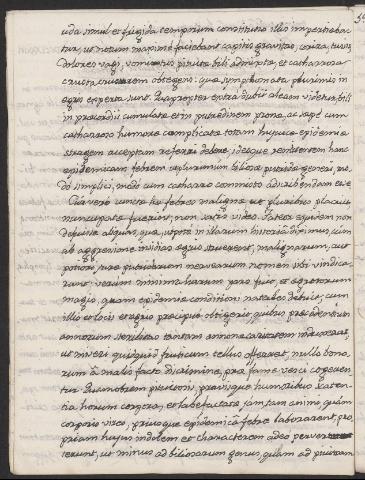 uda simul et frigida temporum constitutio illas impertiebat
tur, ut notum maxime faciebant capitis gravitas, coriza, tussis
dolores vagi, vomitus pituita bili admixta, et catharrosa
crusta obtegens: qua symptomata plurimis in
agris experta sunt. Quapropter extra dubii aleam videtur, bili
in præcordiis cumulata et in putredinem prona, ac sæpe cum
catharroso humore complicata totam hujusce epidemiæ
stragem acceptam referri debere; ideoque remittentem hanc
epidemicam febrem ut plurimum biliosæ putridæ generi, mo
do simplici, modo cum catharro commisto adscribendam esse
Qua vero cunctæ hæ febres malignæ ut pluribus placuit
nuncupatæ fuerint, non satis video. Patet equidem non
defuisse aliquas, quæ, utpote in illarum historia diximus, cum
ab aggressione insidias ægris struerent, malignarum, aut
potiori jure putridarum nervearum nomen sibi vindica
runt; verum minima harum pars fuit, et ægrotorum
magis, quam epidemiæ conditioni natales debuit; cum
illis et locis et ægris præcipue obtigerit, quibus præcedentium
annorum sterilitas tantam annonæ caritatem induxerat,
ut miseri quidquid fruticum tellus offerret, nullo bono
rum a malis facto discrimine, præ fame vesci cogerentur
tur. Quamobrem pituitosis, pravisque humoribus scaten
tia horum corpora, et labefactatæ jam tam animi, quam
corporis vires, priusque epidemica febre laborarent, pro
priam hujus indolem et characterem adeo perver
terunt, ut minus ad biliosarum genus, quam ad putridam